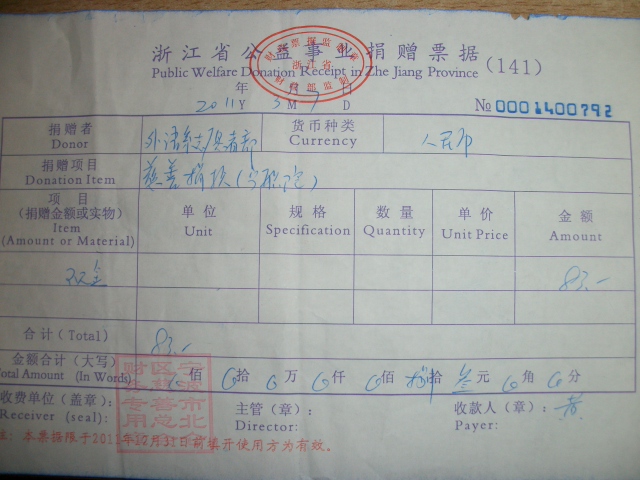 浙江省公益事业捐赠票据 (141)
Public Welfare Donation Receipt in Zhe Jiang Province
年 月 日
2011 Y 3 M 7 D № 0001400792
捐赠者 货币种类 人民币
Donor Currency
捐赠项目 慈善捐款
Donation Item
项目 单位 规格 数量 单价 金额
(捐赠金额或实物) Unit Specification Quantity Unit Price Amount
Item
(Amount or Material)
现金 83.-
合计(Total) 83.-
金额合计(大写) 佰 拾 万 仟 佰 捌拾 叁元 角 分
Total Amount (In Words)
收费单位(盖章): 主管(章): 收款人(章): 黄
Receiver (seal): Director: Payer:
注: 本票据限于2011年12月31日前填开使用方为有效。
浙江省